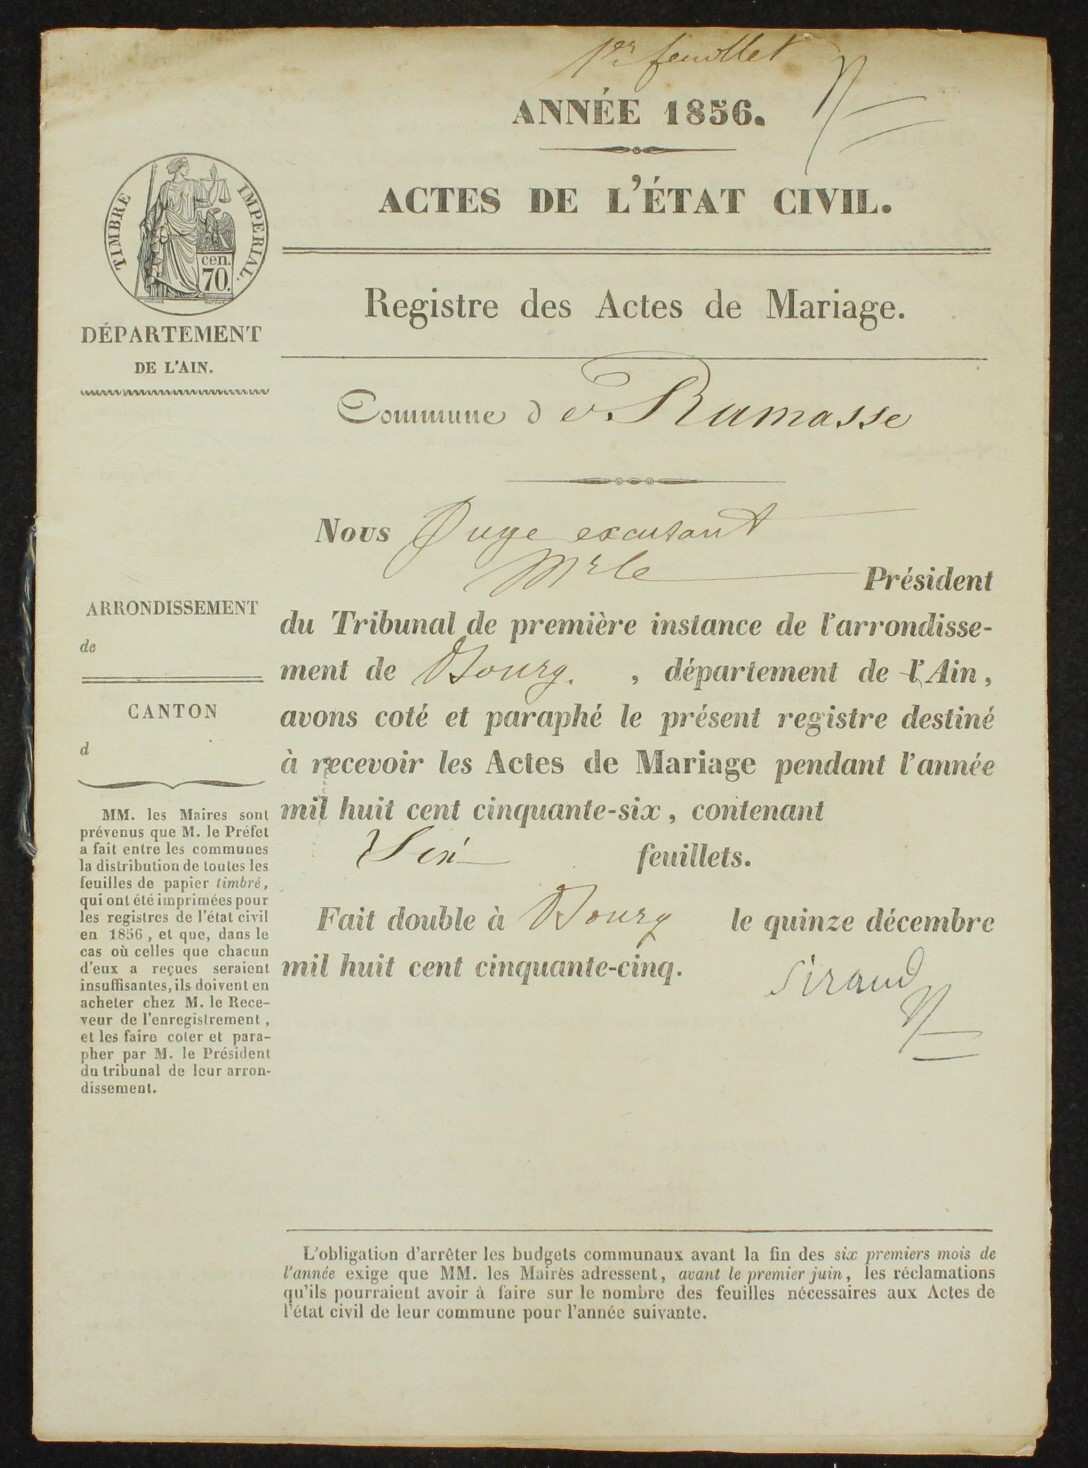 1er feuillet
ANNÉE 1856.
ACTES DE L'ÉTAT CIVIL.
TIMBRE IMPERIAL.
cen.
70.
DÉPARTEMENT
DE L'AIN.
Registre des Actes de Mariage.
Commune de Ramasse
Nous Juge excusant
Mr le Président
du Tribunal de première instance de l'arrondisse-
ment de Bourg. , département de l'Ain,
avons coté et paraphé le présent registre destiné
à recevoir les Actes de Mariage pendant l'année
mil huit cent cinquante-six, contenant
Six feuillets.
Fait double à Bourg le quinze décembre
mil huit cent cinquante-cinq.
Siraud
ARRONDISSEMENT
de
CANTON
d
MM. les Maires sont
prévenus que M. le Préfet
a fait entre les communes
la distribution de toutes les
feuilles de papier timbré,
qui ont été imprimées pour
les registres de l'état civil
en 1856, et que, dans le
cas où celles que chacun
d'eux a reçues seraient
insuffisantes, ils doivent en
acheter chez M. le Rece-
veur de l'enregistrement,
et les faire coter et para-
pher par M. le Président
du tribunal de leur arron-
dissement.
L'obligation d'arrêter les budgets communaux avant la fin des six premiers mois de
l'année exige que MM. les Maires adressent, avant le premier juin, les réclamations
qu'ils pourraient avoir à faire sur le nombre des feuilles nécessaires aux Actes de
l'état civil de leur commune pour l'année suivante.